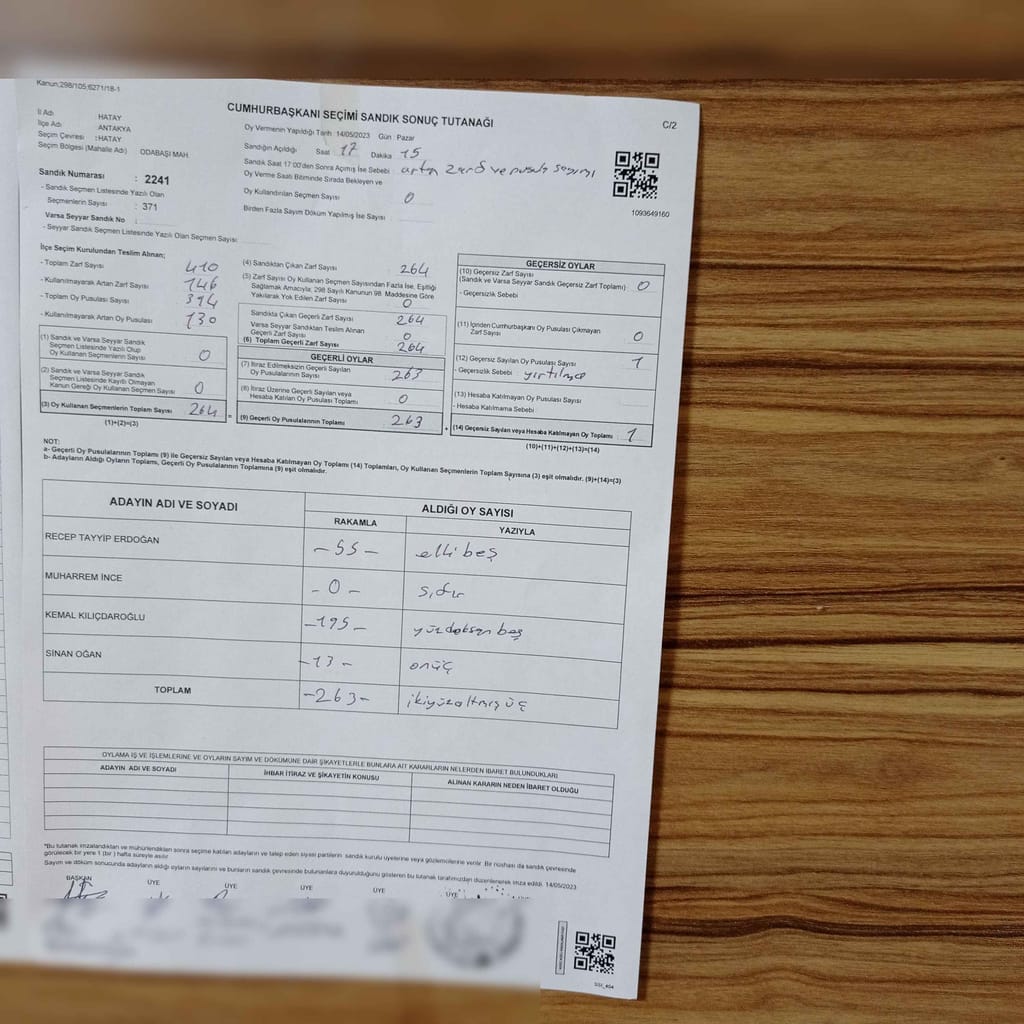 Kanun;298/105;6271/18-1
CUMHURBAŞKANI SEÇİMİ SANDIK SONUÇ TUTANAĞI
C/2
İl Adı HATAY
İlçe Adı ANTAKYA
Seçim Çevresi :HATAY
Seçim Bölgesi (Mahalle Adı) ODABAŞI MAH.
Sandık Numarası : 2241
- Sandık Seçmen Listesinde Yazılı Olan
Seçmenlerin Sayısı : 371
Varsa Seyyar Sandık No :
- Seyyar Sandık Seçmen Listesinde Yazılı Olan Seçmen Sayısı
Oy Vermenin Yapıldığı Tarih 14/05/2023 Gün : Pazar
Sandığın Açıldığı Saat 17 Dakika 15
Sandık Saat 17:00'den Sonra Açılmış İse Sebebi artan zarf ve pusula sayımı
Oy Verme Saati Bitiminde Sırada Bekleyen ve
Oy Kullandırılan Seçmen Sayısı 0
Birden Fazla Sayım Döküm Yapılmış İse Sayısı
1093649160
İlçe Seçim Kurulundan Teslim Alınan;
- Toplam Zarf Sayısı 410
- Kullanılmayarak Artan Zarf Sayısı 146
- Toplam Oy Pusulası Sayısı 394
- Kullanılmayarak Artan Oy Pusulası 130
(1) Sandık ve Varsa Seyyar Sandık
Seçmen Listesinde Yazılı Olup
Oy Kullanan Seçmenlerin Sayısı 0
(2) Varsa Sandık ve Seyyar Sandık
Seçmen Listesinde Kayıtlı Olmayan
Kanun Gereği Oy Kullanan Seçmen Sayısı 0
(3) Oy Kullanan Seçmenlerin Toplam Sayısı 264
(1)+(2)=(3)
(4) Sandıktan Çıkan Zarf Sayısı 264
(5) Zarf Sayısı Oy Kullanan Seçmen Sayısından Fazla İse, Eşitliği
Sağlamak Amacıyla; 298 Sayılı Kanunun 98. Maddesine Göre
Yakılarak Yok Edilen Zarf Sayısı 0
Sandıkta Çıkan Geçerli Zarf Sayısı 264
Varsa Seyyar Sandıktan Teslim Alınan
Geçerli Zarf Sayısı 0
(6) Toplam Geçerli Zarf Sayısı 264
GEÇERLİ OYLAR
(7) İtiraz Edilmeksizin Geçerli Sayılan
Oy Pusulalarının Sayısı 263
(8) İtiraz Üzerine Geçerli Sayılan veya
Hesaba Katılan Oy Pusulası Toplamı 0
(9) Geçerli Oy Pusulalarının Toplamı 263
GEÇERSİZ OYLAR
(10) Geçersiz Zarf Sayısı
(Sandık ve Varsa Seyyar Sandık Geçersiz Zarf Toplamı) 0
- Geçersizlik Sebebi
(11) İçinden Cumhurbaşkanı Oy Pusulası Çıkmayan
Zarf Sayısı 0
(12) Geçersiz Sayılan Oy Pusulası Sayısı 1
- Geçersizlik Sebebi yırtılma
(13) Hesaba Katılmayan Oy Pusulası Sayısı
- Hesaba Katılmama Sebebi
(14) Geçersiz Sayılan veya Hesaba Katılmayan Oy Toplamı 1
(10)+(11)+(12)+(13)=(14)
NOT:
a- Geçerli Oy Pusulalarının Toplamı (9) ile Geçersiz Sayılan veya Hesaba Katılmayan Oy Toplamı (14) Toplamları, Oy Kullanan Seçmenlerin Toplam Sayısına (3) eşit olmalıdır. (9)+(14)=(3)
b- Adayların Aldığı Oyların Toplamı, Geçerli Oy Pusulalarının Toplamına (9) eşit olmalıdır.
ADAYIN ADI VE SOYADI ALDIĞI OY SAYISI
RAKAMLA YAZIYLA
RECEP TAYYİP ERDOĞAN -55- elli beş
MUHARREM İNCE -0- sıfır
KEMAL KILIÇDAROĞLU -195- yüzdoksan beş
SİNAN OĞAN -13- onüç
TOPLAM -263- ikiyüzaltmış üç
OYLAMA İŞ VE İŞLEMLERİNE VE OYLARIN SAYIM VE DÖKÜMÜNE DAİR ŞİKAYETLERLE BUNLARA AİT KARARLARIN NELERDEN İBARET BULUNDUKLARI
ADAYIN ADI VE SOYADI İHBAR İTİRAZ VE ŞİKAYETİN KONUSU ALINAN KARARIN NEDEN İBARET OLDUĞU
*Bu tutanak imzalandıktan ve mühürlendikten sonra seçime katılan adayların ve talep eden siyasi partilerin sandık kurulu üyelerine veya gözlemcilerine verilir. Bir nüshası da sandık çevresinde
görülecek bir yere 1 (bir) hafta süreyle asılır.
Sayım ve döküm sonucunda adayların aldığı oyların sayılarını ve bunların sandık çevresinde bulunanlara duyurulduğunu gösteren bu tutanak tarafımızdan düzenlenerek imza edildi. 14/05/2023
BAŞKAN ÜYE ÜYE ÜYE ÜYE ÜYE